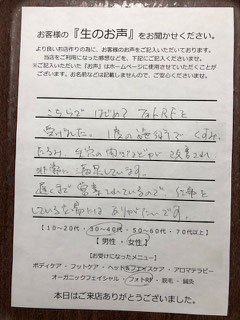 お客様の『生のお声』をお聞かせください。
より良いお店作りの為に、お客様のお声をご記入いただいております。
当店をご利用になった感想などを、下記にご記入くださいませ。
※ご記入いただいた『お声』はホームページに使用させていただくことがございます。お名前などは記載しませんので、ご安心くださいませ。
こちらで はじめて フォトRFを
受けました。1度の施術で くすみ、
たるみ、毛穴の開きなどが 改善され
非常に 満足しています
遅くまで営業されているので、仕事を
している女性には ありがたいです。
【 10～20代 ・ 30～40代 ・ 50～60代 ・ 70代以上 】
【 男性 ・ 女性 】
【お受けになったメニュー】
ボディケア ・ フットケア ・ ヘッド&フェイスケア ・ アロマテラピー
オーガニックフェイシャル ・ フォトRF ・ 脱毛 ・ 鍼灸
本日はご来店ありがとうございました。